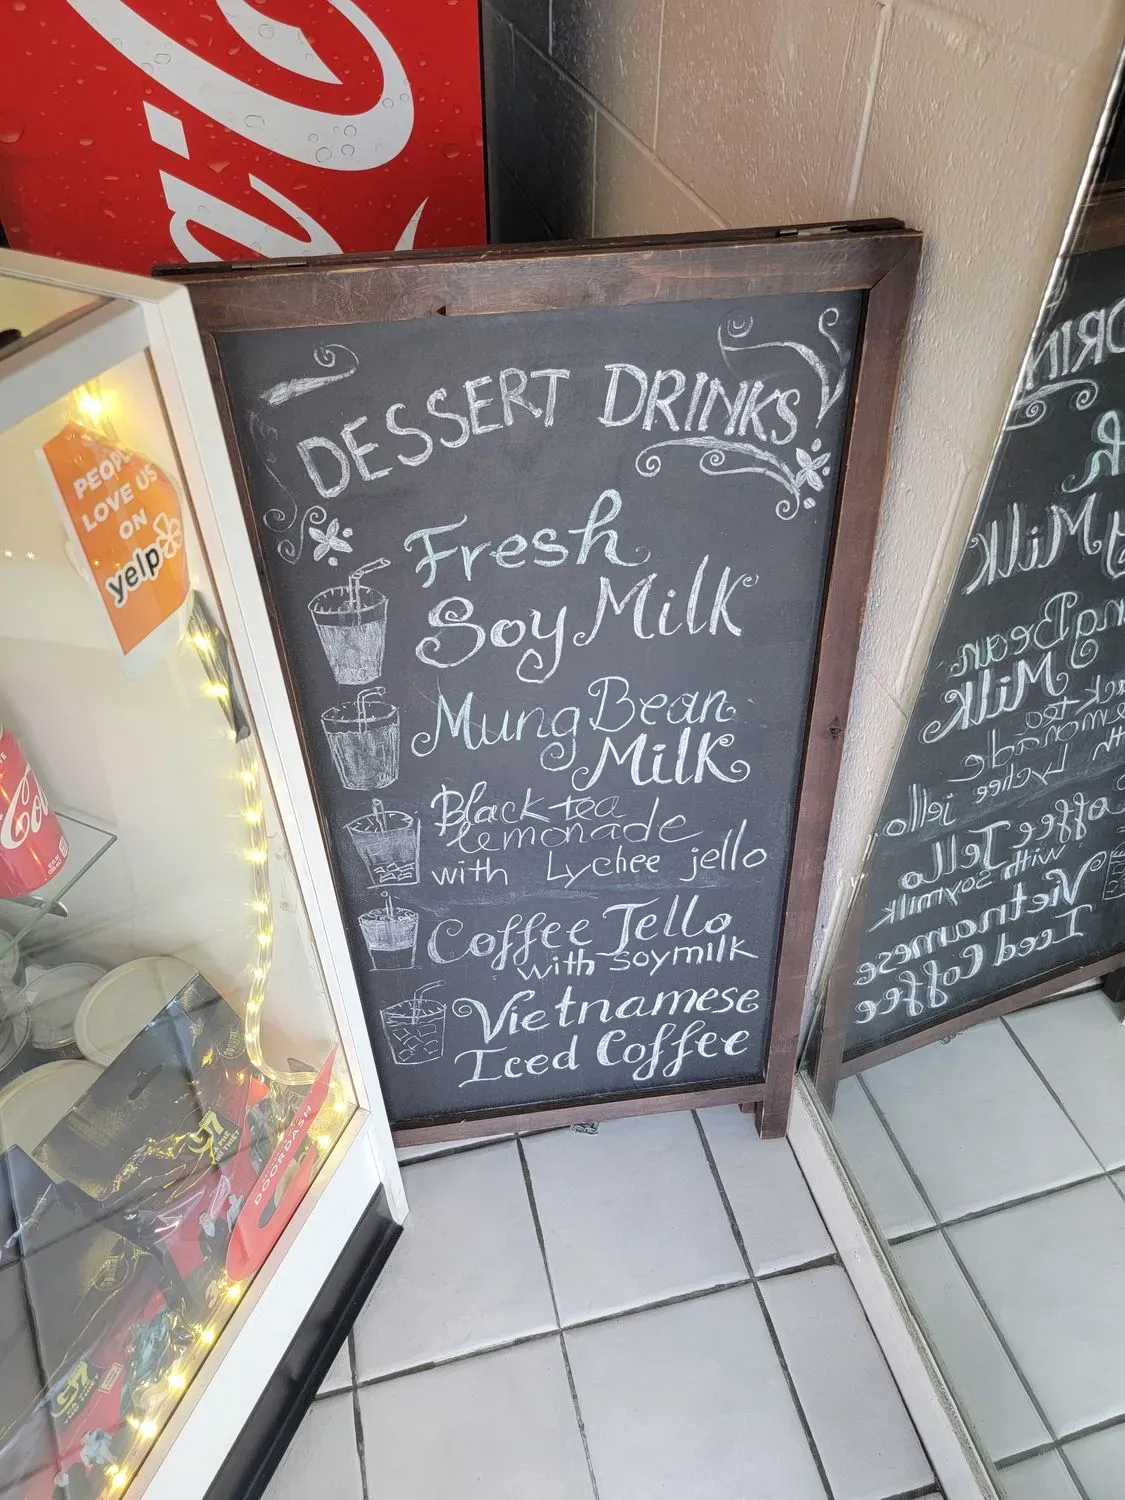 DESSERT DRINKS
Fresh
Soy Milk
Mung Bean
Milk
Black tea
lemonade
with Lychee jello
Coffee Jello
with soymilk
Vietnamese
Iced Coffee
PEOPLE
LOVE US
ON
yelp
DOORDASH
G7
G7